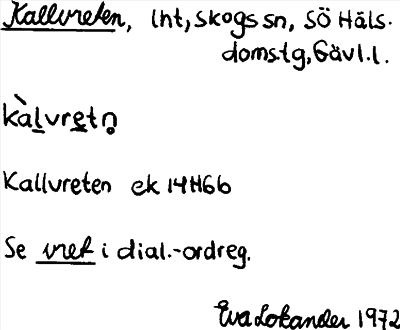 Kallvreten, lnt, skogs sn, SÖ Häls-
domstg, Gävl.l.
kàlvretn̥
Kallvreten ek 14H6b
Se vret i dial.-ordreg.
Eva Lokander 1972